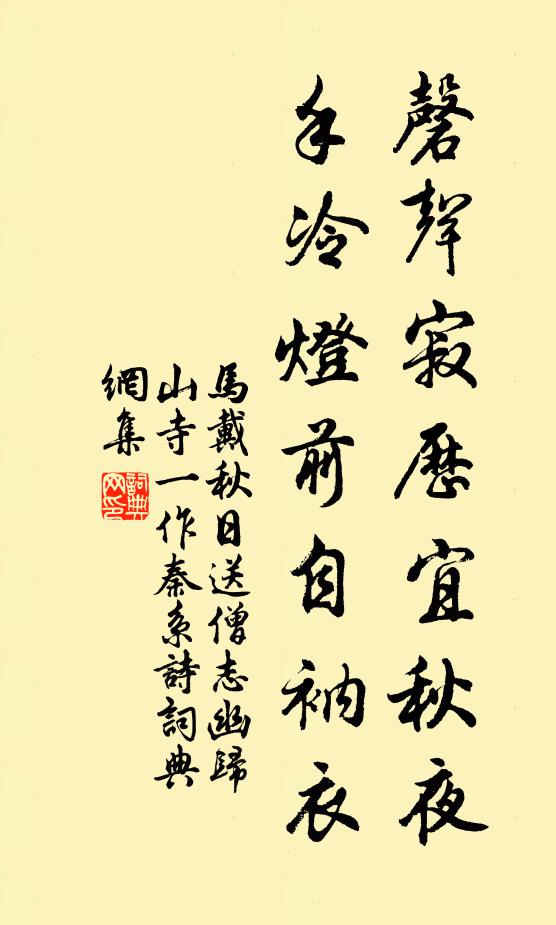 磬聲寂歷宜秋夜
手冷燈前自衲衣
馬戴秋日送僧志幽歸
山寺一作秦系詩詞典
網集
詞典
网印